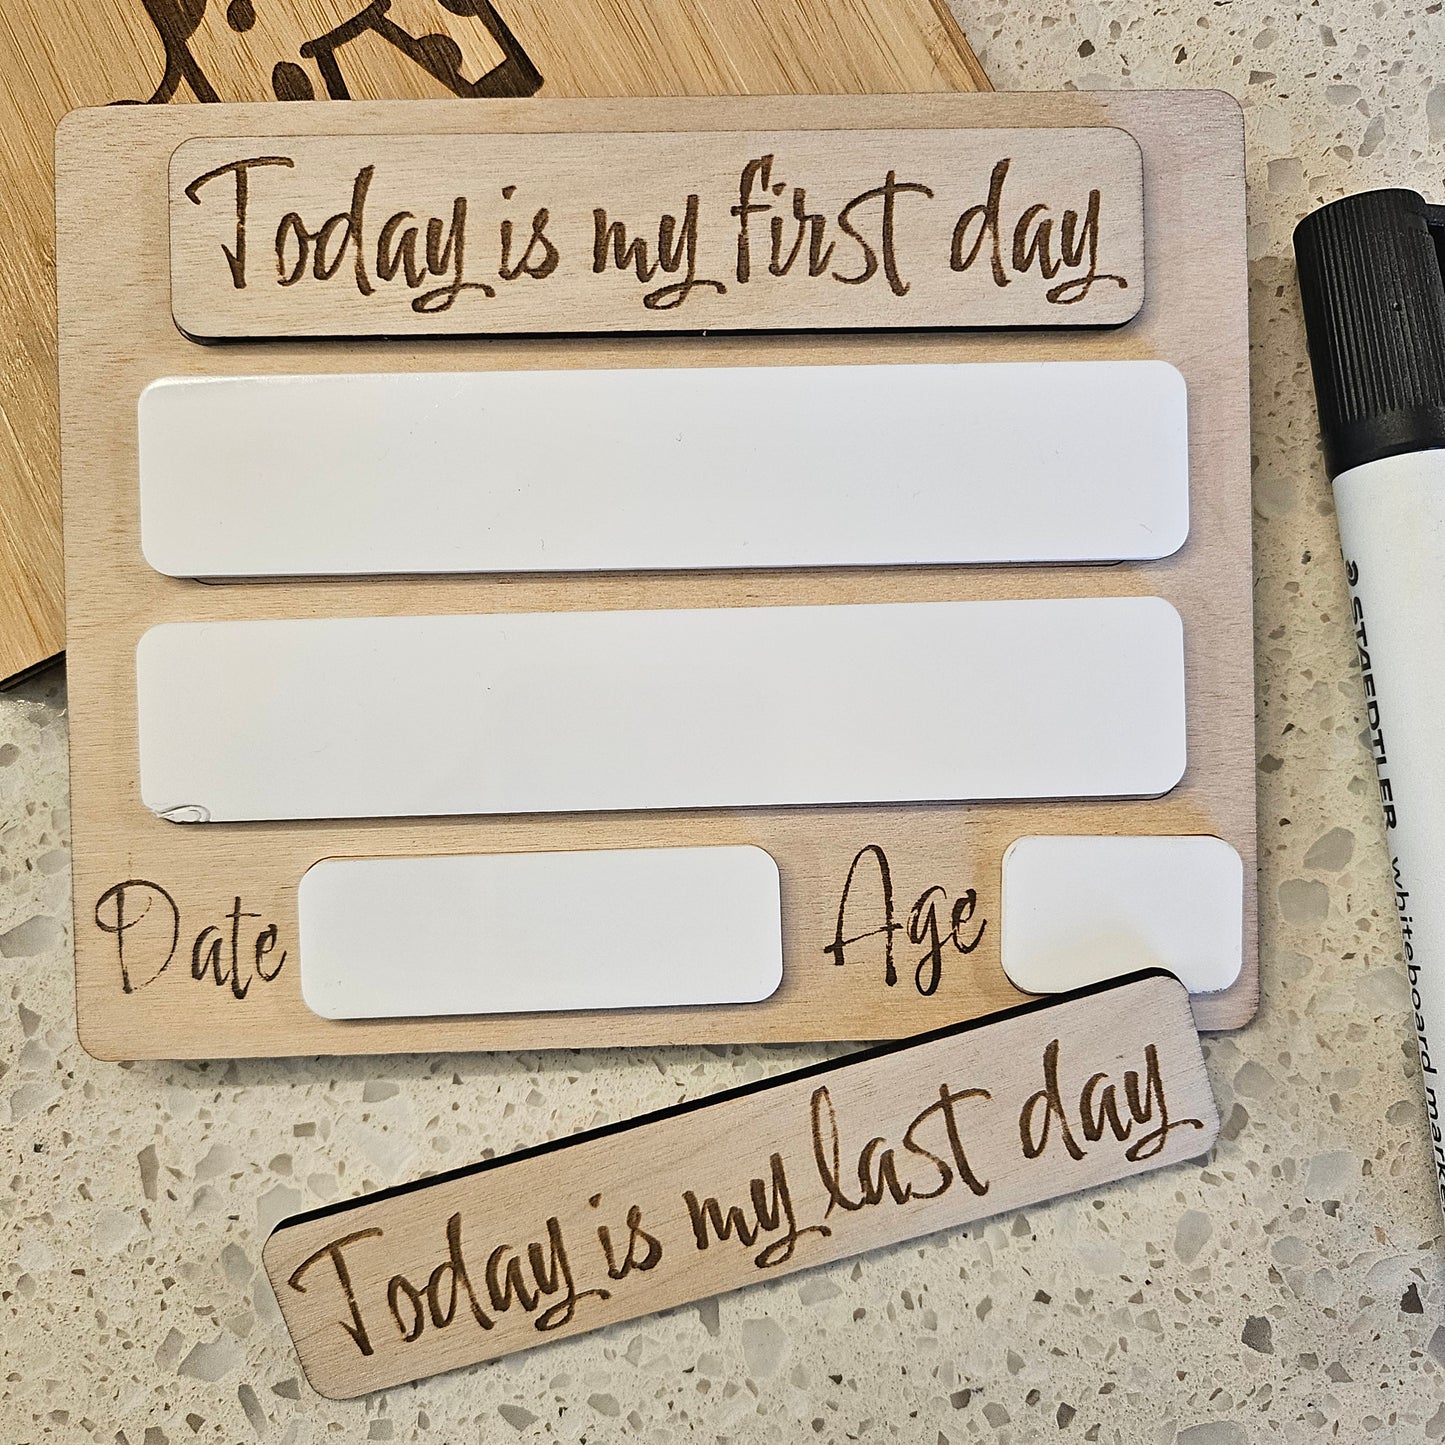 Today is my first day
Date
Age
Today is my last day
STAEDTLER whiteboard marke